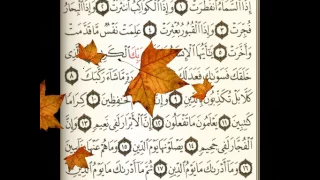 إِذَا السَّمَاءُ انفَطَرَتْ ١ وَإِذَا الْكَوَاكِبُ انتَثَرَتْ ٢ وَإِذَا الْبِحَارُ
فُجِّرَتْ ٣ وَإِذَا الْقُبُورُ بُعْثِرَتْ ٤ عَلِمَتْ نَفْسٌ مَّا قَدَّمَتْ
وَأَخَّرَتْ ٥ يَا أَيُّهَا الْكَرِيمِ
خَلَقَكَ فَسَوَّاكَ فَعَدَلَكَ مَّا شَاءَ رَكَّبَكَ ٨
كَلَّا بَلْ تُكَذِّبُونَ لَحَافِظِينَ ١٠ كِرَامًا
كَاتِبِينَ ١١ يَعْلَمُونَ مَا تَفْعَلُونَ ١٢ إِنَّ الْأَبْرَارَ لَفِي نَعِيمٍ ١٣ وَإِنَّ
الْفُجَّارَ لَفِي جَحِيمٍ ١٤ يَصْلَوْنَهَا يَوْمَ الدِّينِ ١٥ وَمَا هُمْ عَنْهَا بِغَائِبِينَ
١٦ وَمَا أَدْرَاكَ مَا يَوْمُ الدِّينِ ١٧ ثُمَّ مَا أَدْرَاكَ مَا يَوْمُ